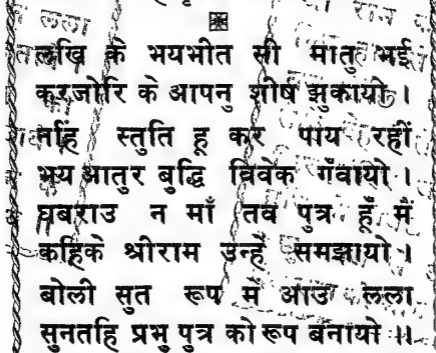 लखि के भयभीत सी मातु भई
करजोरि के आपनु शीष झुकायो ।
नहिं स्तुति हू कर पाय रहीं
भय आतुर बुद्धि विवेक गँवायो ।
घबराउ न माँ तव पुत्र हूँ मैं
कहिके श्रीराम उन्हें समझायो ।
बोली सुत रूप में आउ लला
सुनतहि प्रभु पुत्र को रूप बनायो ॥